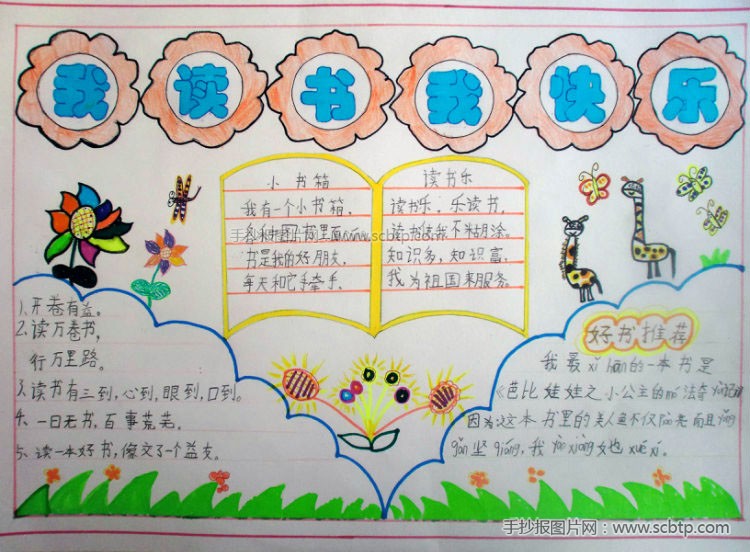 我读书我快乐
小书箱
我有一个小书箱，
各种图书箱里面
书是我的好朋友，
每天和它手牵手。
读书乐
读书乐，乐读书，
读书使我不糊涂。
知识多，知识富，
我为祖国来服务。
www.scbtp.com
1、开卷有益。
2、读万卷书，
行万里路。
3、读书有三到，心到，眼到，口到。
4、一日无书，百事荒芜。
5、读一本好书，像交了一个益友。
好书推荐
我最xǐ huan的一本书是
《芭比娃娃之小公主的mó法奇
因为这本书里的美人鱼不仅 而且
坚qiáng，我 她xué xí.
手抄报图片网：www.scbtp.com